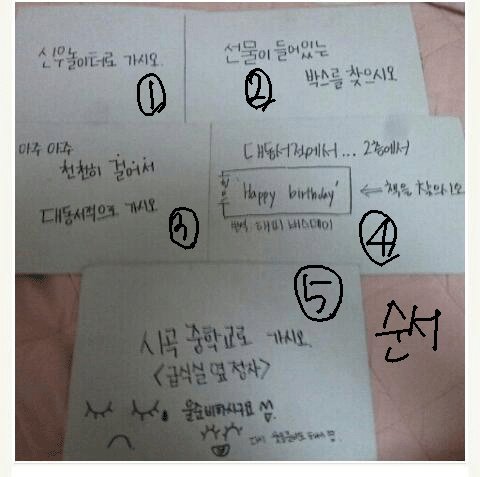 신우놀이터로 가시오.
①
선물이 들어있는
박스를 찾으시오
②
아주 아주
천천히 걸어서
대동서적으로 가시오
③
대동서점에서... 2층에서
'Happy birthday' ⇐ 책을 찾으시오
번역. 해피 버스데이
④
⑤
시곡 중학교로 가시오.
<급식실 옆 정자>
울준비하시구요
순서